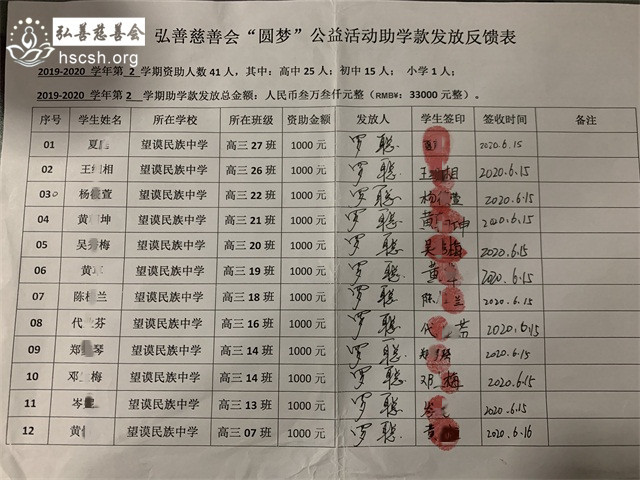 弘善慈善会
hscsh.org
弘善慈善会“圆梦”公益活动助学款发放反馈表
2019-2020 学年第 2 学期资助人数 41 人，其中：高中 25 人；初中 15 人； 小学 1 人；
2019-2020 学年第 2 学期助学款发放总金额：人民币叁万叁仟元整（RMB¥： 33000 元整）。
序号 学生姓名 所在学校 所在班级 资助金额 发放人 学生签印 签收时间 备注
01 夏 望谟民族中学 高三 27 班 1000 元 罗聪 2020.6.15
02 王 相 望谟民族中学 高三 26 班 1000 元 罗聪 王 相 2020.6.15
030 杨 萱 望谟民族中学 高三 22 班 1000 元 罗聪 杨 萱 2020.6.15
04 黄 坤 望谟民族中学 高三 21 班 1000 元 罗聪 黄 坤 2020.6.15
05 吴 梅 望谟民族中学 高三 20 班 1000 元 罗聪 吴 梅 2020.6.15
06 黄 望谟民族中学 高三 19 班 1000 元 罗聪 黄 2020.6.15
07 陈 兰 望谟民族中学 高三 18 班 1000 元 罗聪 陈 兰 2020.6.15
08 代 芬 望谟民族中学 高三 16 班 1000 元 罗聪 代 芬 2020.6.15
09 郑 琴 望谟民族中学 高三 14 班 1000 元 罗聪 郑 琴 2020.6.15
10 邓 梅 望谟民族中学 高三 14 班 1000 元 罗聪 邓 梅 2020.6.15
11 岑 望谟民族中学 高三 13 班 1000 元 罗聪 岑 2020.6.15
12 黄 望谟民族中学 高三 07 班 1000 元 罗聪 黄 2020.6.16